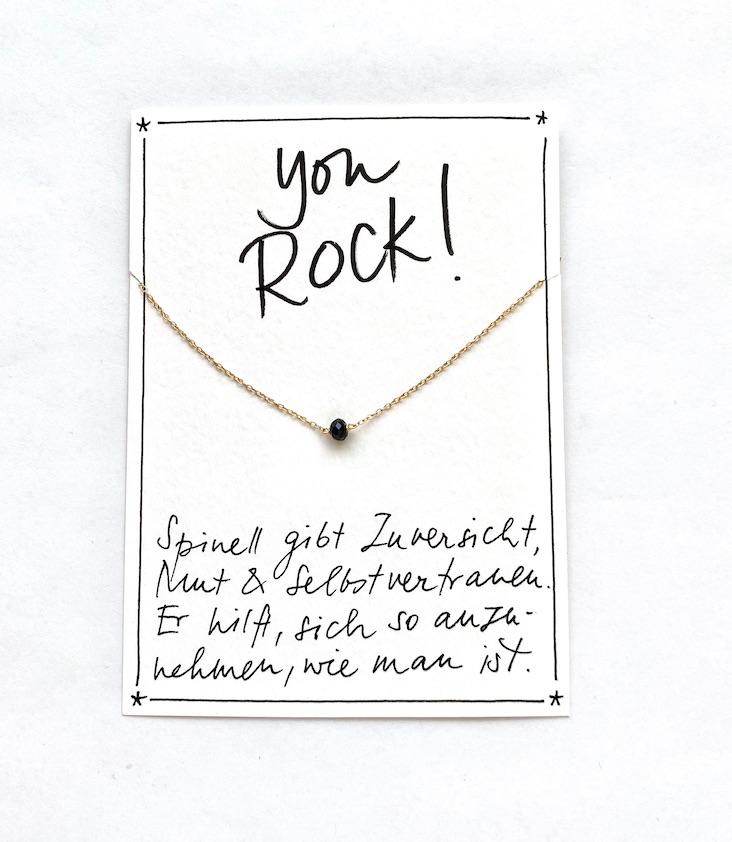 you
ROCK!
Spinell gibt Zuversicht,
Mut & Selbstvertrauen.
Er hilft, sich so anzu-
nehmen, wie man ist.